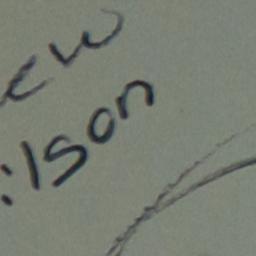 ew
ilson